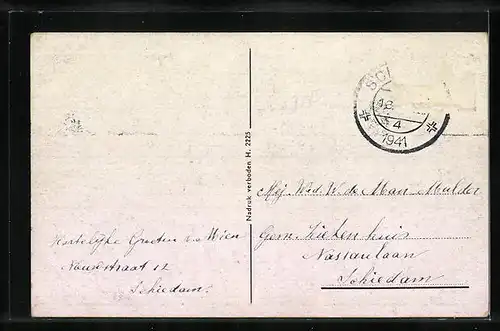 SCH
4
1941
Nadruk verboden H. 2225
Mej. Wed. W. de Man-Mulder
Gem. Ziekenhuis
Nassaulaan
Schiedam
Hartelijke Groeten v. Wien
Nieuwstraat 12
Schiedam.